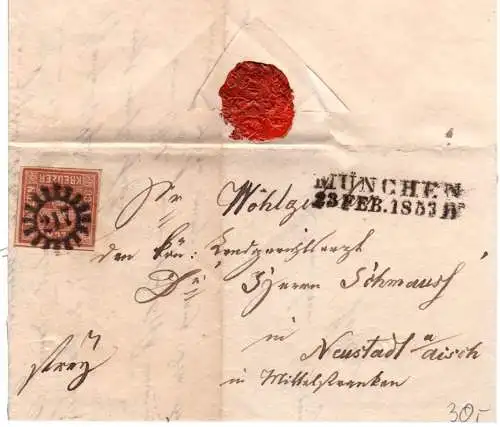 MÜNCHEN
23 FEB. 1853 IV
KREUZER
217
Sr Wohlgeb
den kön: Landgerichtsarzt
Dr Herrn Schmauss
in
Neustadt a/Aisch
in Mittelfranken
frey
30,-